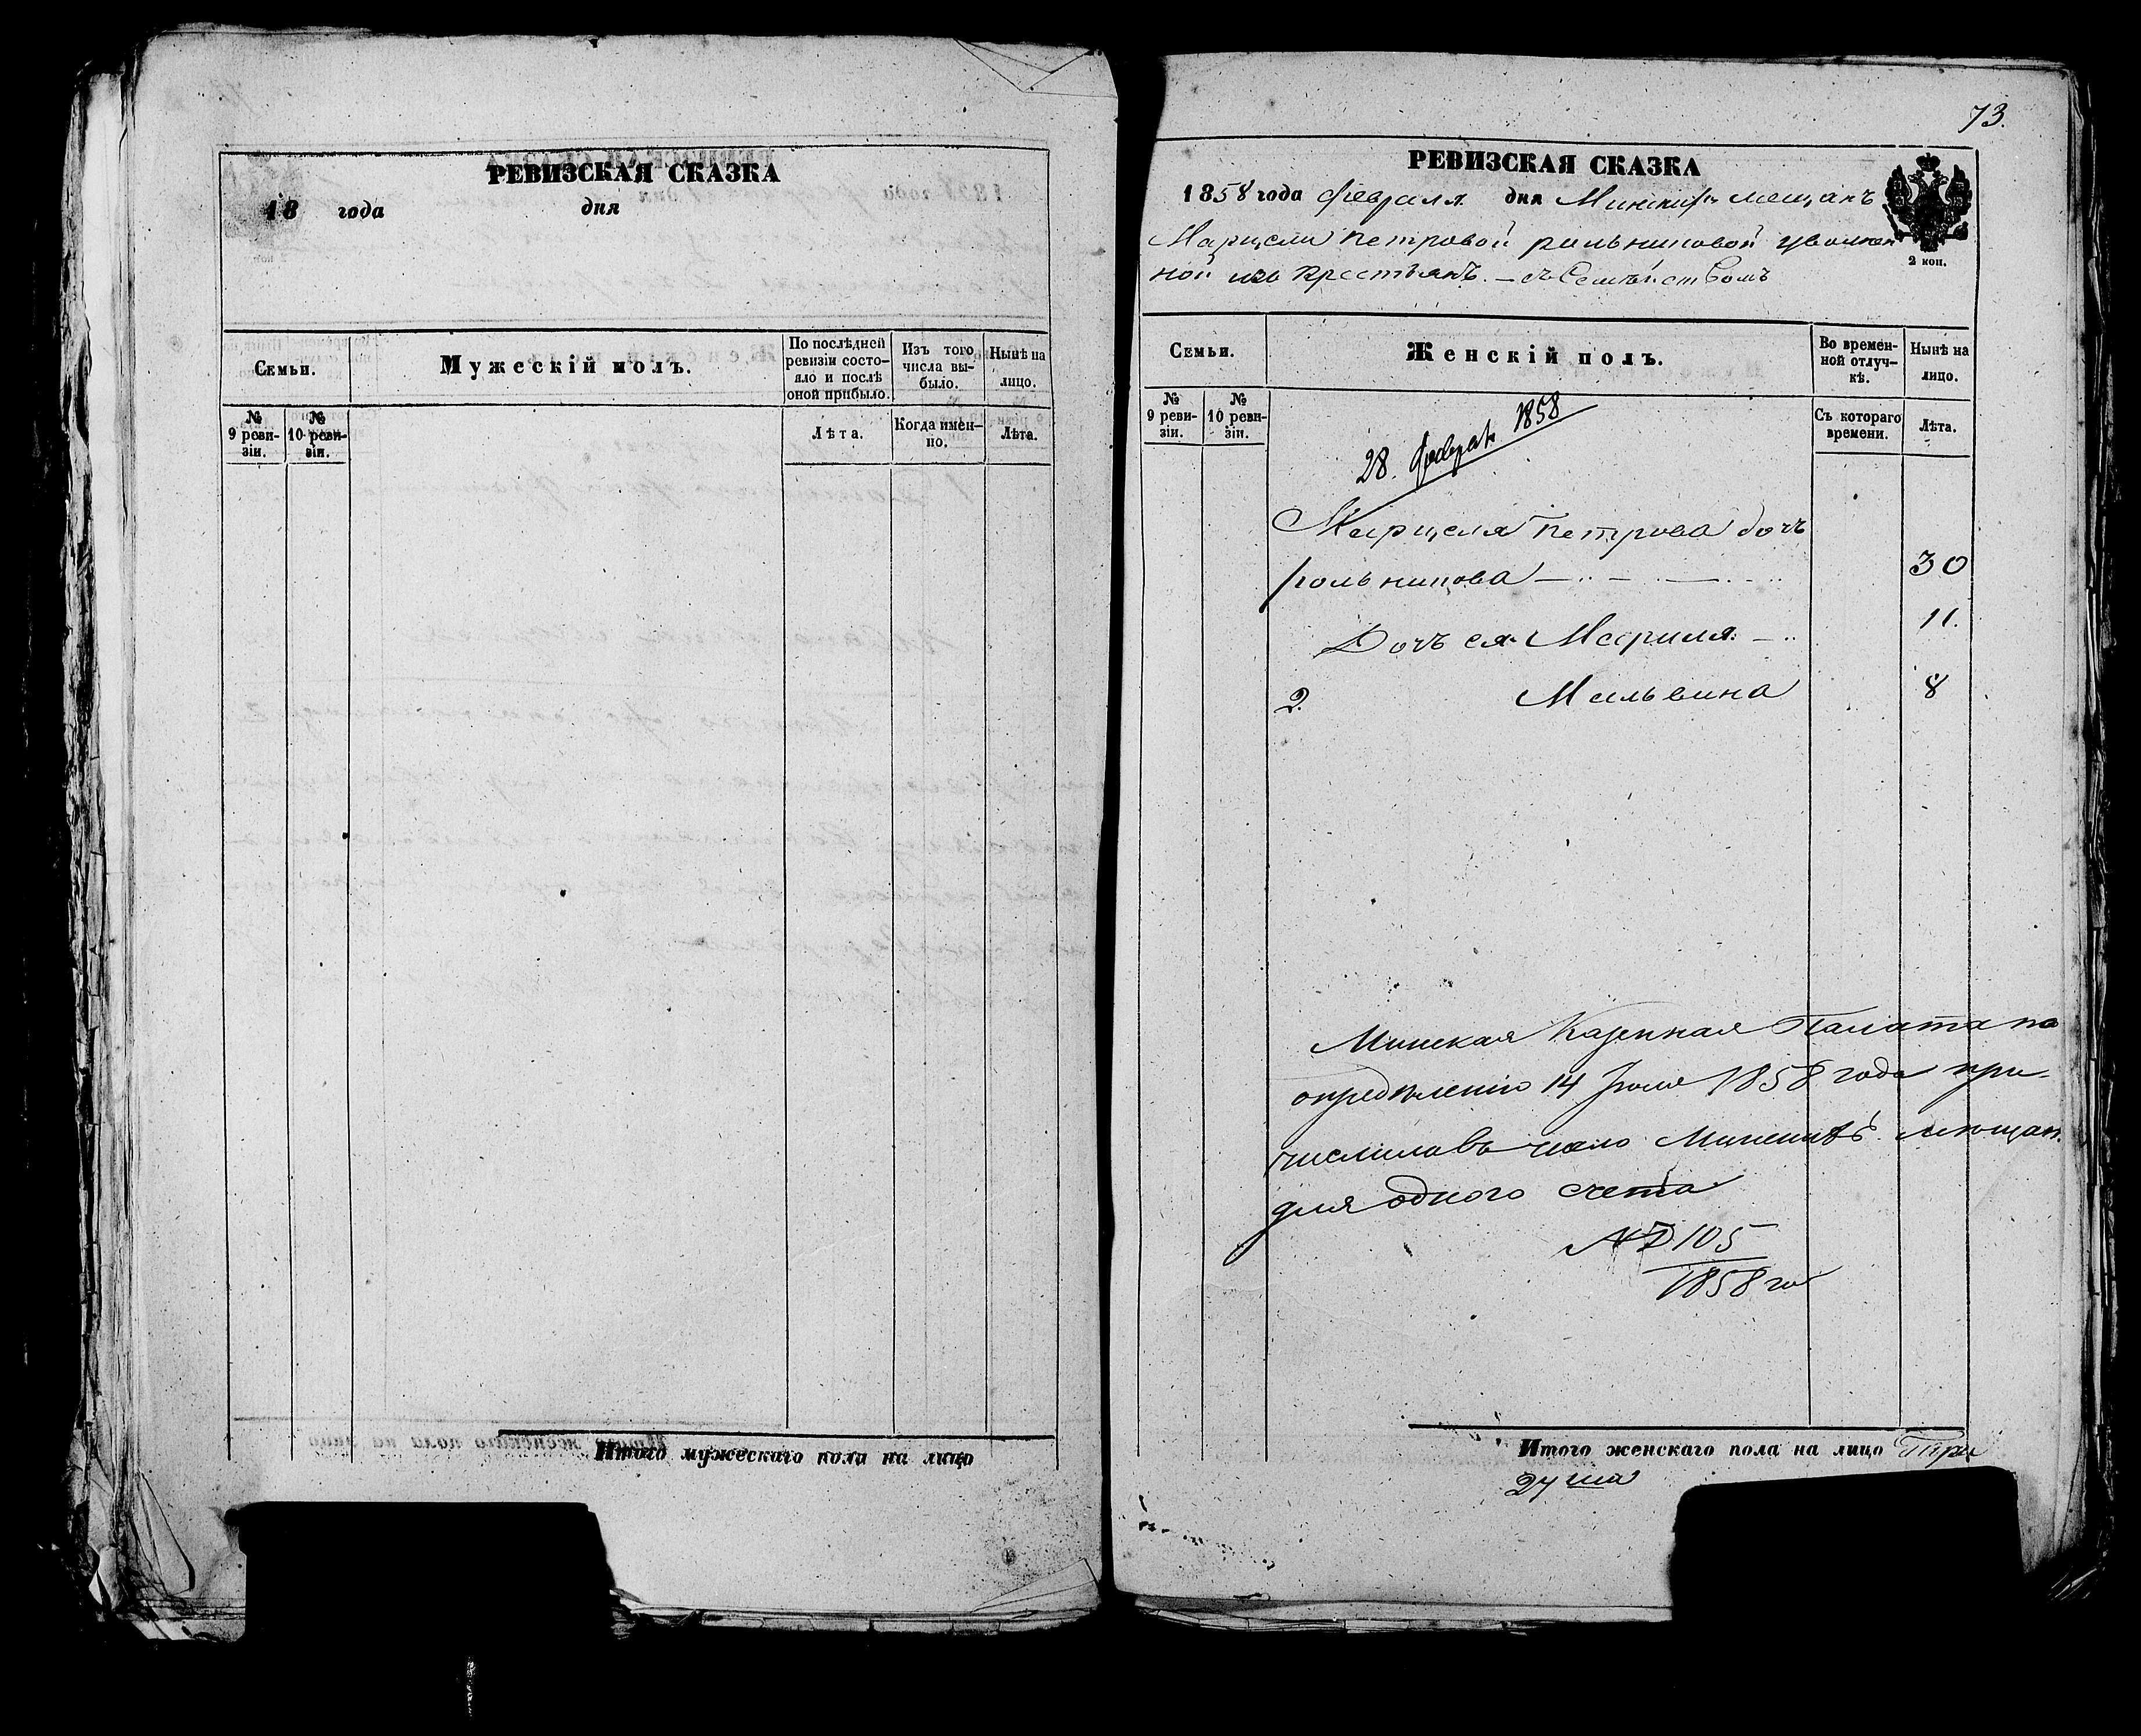 РЕВИЗСКАЯ СКАЗКА
18 года дня
Семьи.
Мужескій полъ.
По послѣдней ревизіи состо-
яло и послѣ
оной прибыло.
Изъ того
числа вы-
было.
Нынѣ на
лицо.
№
9 реви-
зіи.
№
10 реви-
зіи.
Лѣта.
Когда имен-
но.
Лѣта.
Итого мужескаго пола на лицо
73.
РЕВИЗСКАЯ СКАЗКА
1858 года февраля дня мещанъ
Марцели Петровой рольниковой уволен
ной изъ крестьянъ. — съ Семѣйствомъ
2 коп.
Семьи.
Женскій полъ.
Во времен-
ной отлуч-
кѣ.
Нынѣ на
лицо.
№
9 реви-
зіи.
№
10 реви-
зіи.
Съ котораго
времени.
Лѣта.
28. 1858
Марцеля Петрова дочь
рольникова 30
Дочь ея Мариля 11.
2. Мальвина 8
Минская Казенная Палата по
опредѣленію 14 1858 года при-
числила въ число мещан.
для одного счета
№ 105
1858 го
Итого женскаго пола на лицо Три
душа